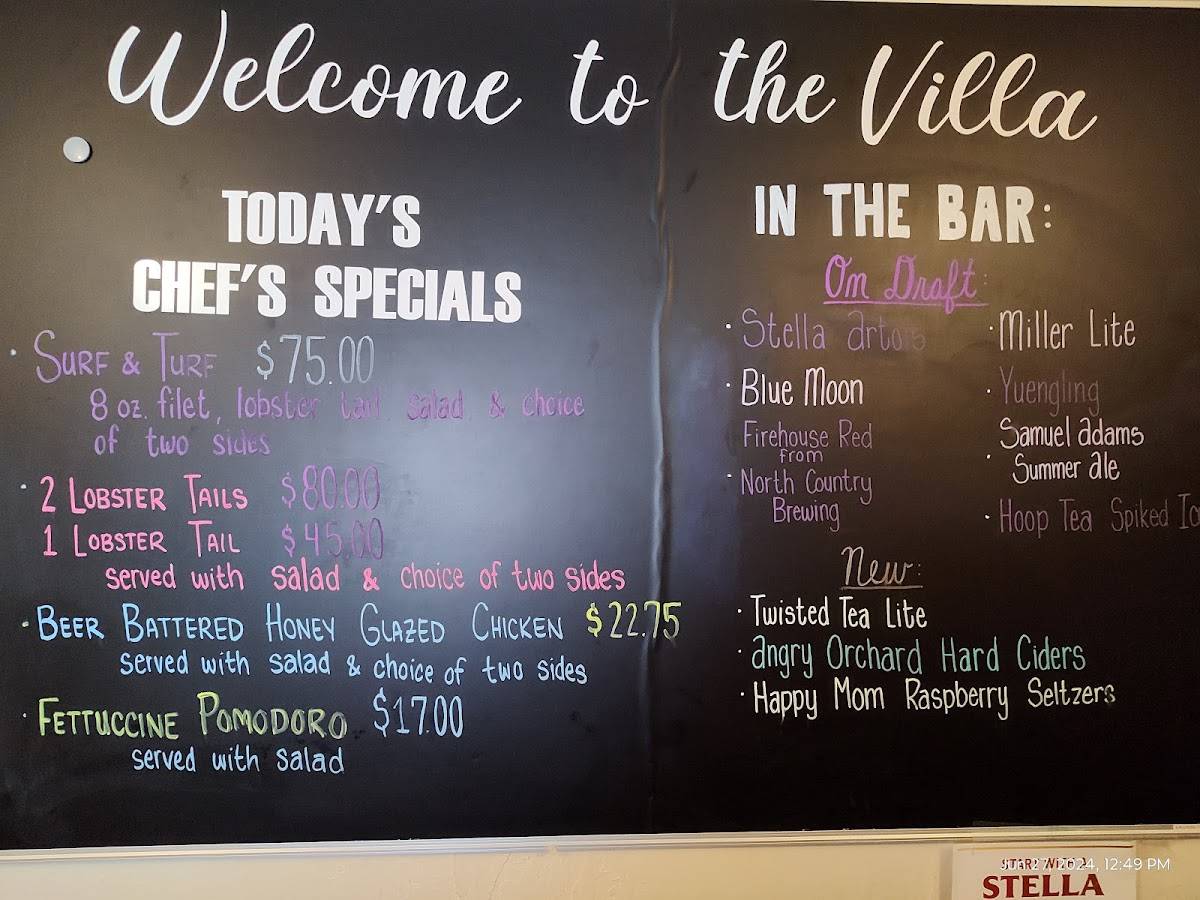 Welcome to the Villa
TODAY'S
CHEF'S SPECIALS
SURF & TURF $75.00
8 oz. filet, lobster tail, salad, & choice
of two sides
2 LOBSTER TAILS $80.00
1 LOBSTER TAIL $45.00
served with salad & choice of two sides
BEER BATTERED HONEY GLAZED CHICKEN $22.75
served with salad & choice of two sides
FETTUCCINE POMODORO $17.00
served with salad
IN THE BAR:
On Draft:
Stella artois
Blue Moon
Firehouse Red
from
North Country
Brewing
Miller Lite
Yuengling
Samuel adams
Summer ale
Hoop Tea Spiked
New:
Twisted Tea Lite
angry Orchard Hard Ciders
Happy Mom Raspberry Seltzers
START WITH A
STELLA
Jun 27, 2024, 12:49 PM